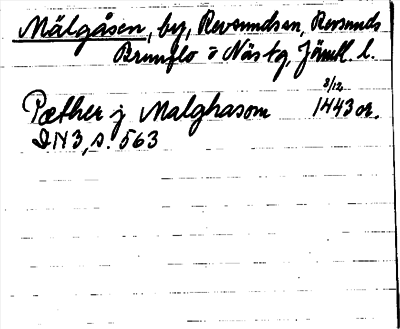 Mälgåsen, by, Revsunds sn, Revsunds
Brunflo o Näs tg, Jämtl. l.
Pæther j Malghasom 3/12 1443 or.
DN3, s. 563